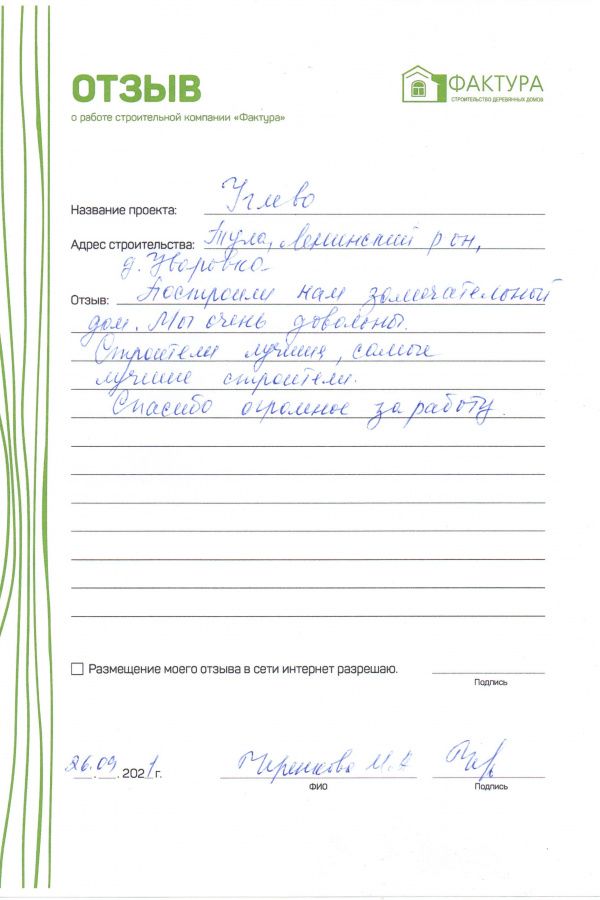 ОТЗЫВ
ФАКТУРА
СТРОИТЕЛЬСТВО ДЕРЕВЯННЫХ ДОМОВ
о работе строительной компании «Фактура»
Название проекта: Углево
Адрес строительства: Тула, Ленинский р он,
д. Уваровка
Отзыв: Построили нам замечательный
дом. Мы очень довольны.
Строители лучшие, самые
лучшие строители.
Спасибо огромное за работу.
Размещение моего отзыва в сети интернет разрешаю.
Подпись
26.09.2021 г.
Черенкова М.А
ФИО
Подпись